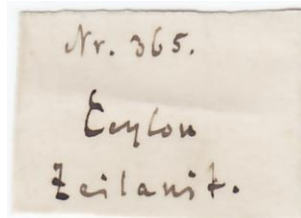 Nr. 365.
Ceylon
Zeilanit.